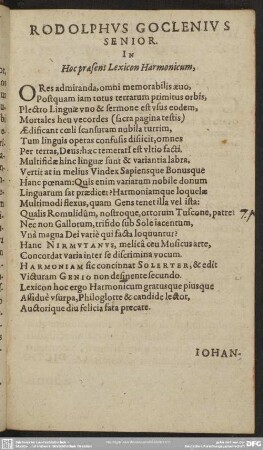 RODOLPHVS GOCLENIVS
SENIOR.
IN
Hoc præsens Lexicon Harmonicum,
O Res admiranda, omni memorabilis ævo,
Postquam iam totus terrarum primitus orbis,
Plectro Linguæ vno & sermone est vsus eodem,
Mortales heu vecordes (sacra pagina testis)
Ædificant cœli scansuram nobila turrim,
Tum linguis operas confusis disiicit, omnes
Per terras, Deus: hæc temerati est vltio facti.
Multifidæ hinc linguæ sunt & variantia labra,
Vertit at in melius Vindex Sapiensque Bonusque
Hanc pœnam: Quis enim variarum nobile donum
Linguarum sat prædicet? Harmoniamque loquelæ
Multimodi flexus, quam Gens tenet illa vel ista:
Qualis Romulidûm, nostroque, ortorum Tuscone, patre?
Nec non Gallorum, trifido sub Sole iacentum,
Vnâ magna Dei variè qui facta loquuntur?
Hanc NIRMVTANVS, melicâ ceu Musicus arte,
Concordat varia inter se discrimina vocum.
HARMONIAM sic concinnat SOLERTER, & edit
Victuram GENIO non desinente secundo.
Lexicon hoc ergo Harmonicum gratusque piusque
Assiduè vsurpa, Philoglotte & candide lector,
Auctorique diu felicia fata precare.
IOHAN-